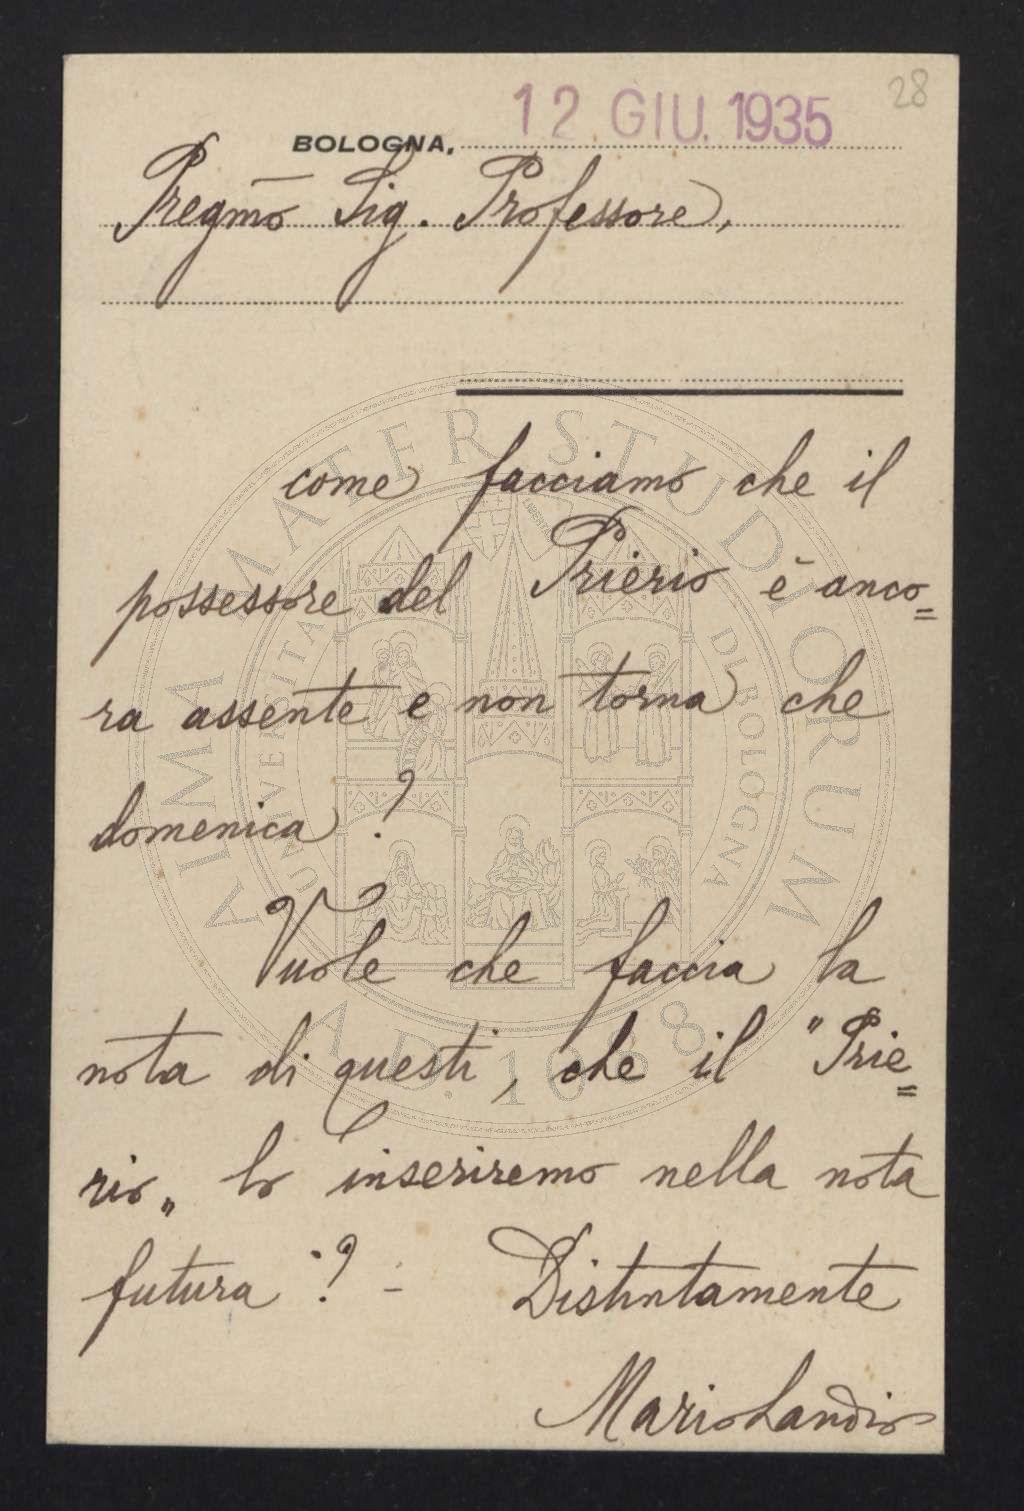 28
BOLOGNA, 12 GIU. 1935
Pregmo Sig. Professore,
come facciamo che il
possessore del Prierio è anco=
ra assente e non torna che
domenica?
Vuole che faccia la
nota di questi, chè il "Prie=
rio„ lo inseriremo nella nota
futura? -
Distintamente
Mario Landi
ALMA MATER STUDIORUM
UNIVERSITÀ DI BOLOGNA
A.D. 1088